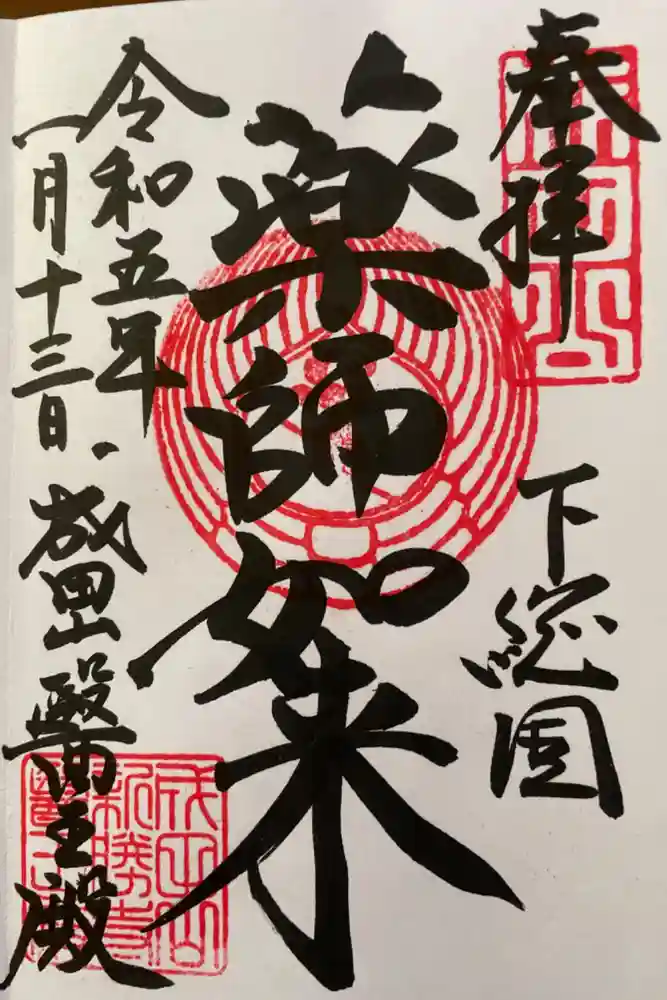 奉拝
下総国
薬師如来
令和五年
一月十三日
成田山醫王殿
成田山
新勝寺